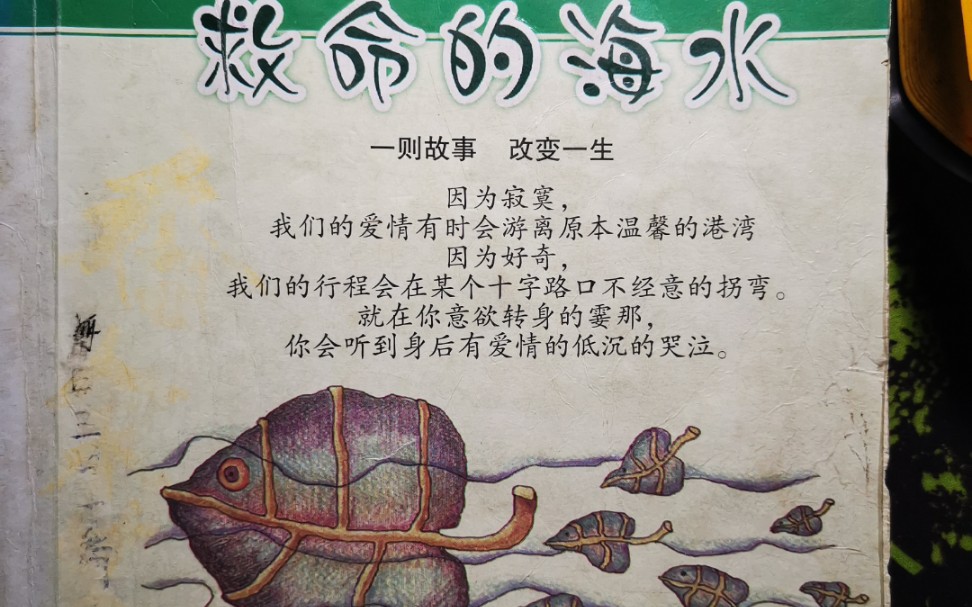 救命的海水
一则故事 改变一生
因为寂寞，
我们的爱情有时会游离原本温馨的港湾
因为好奇，
我们的行程会在某个十字路口不经意的拐弯。
就在你意欲转身的霎那，
你会听到身后有爱情的低沉的哭泣。